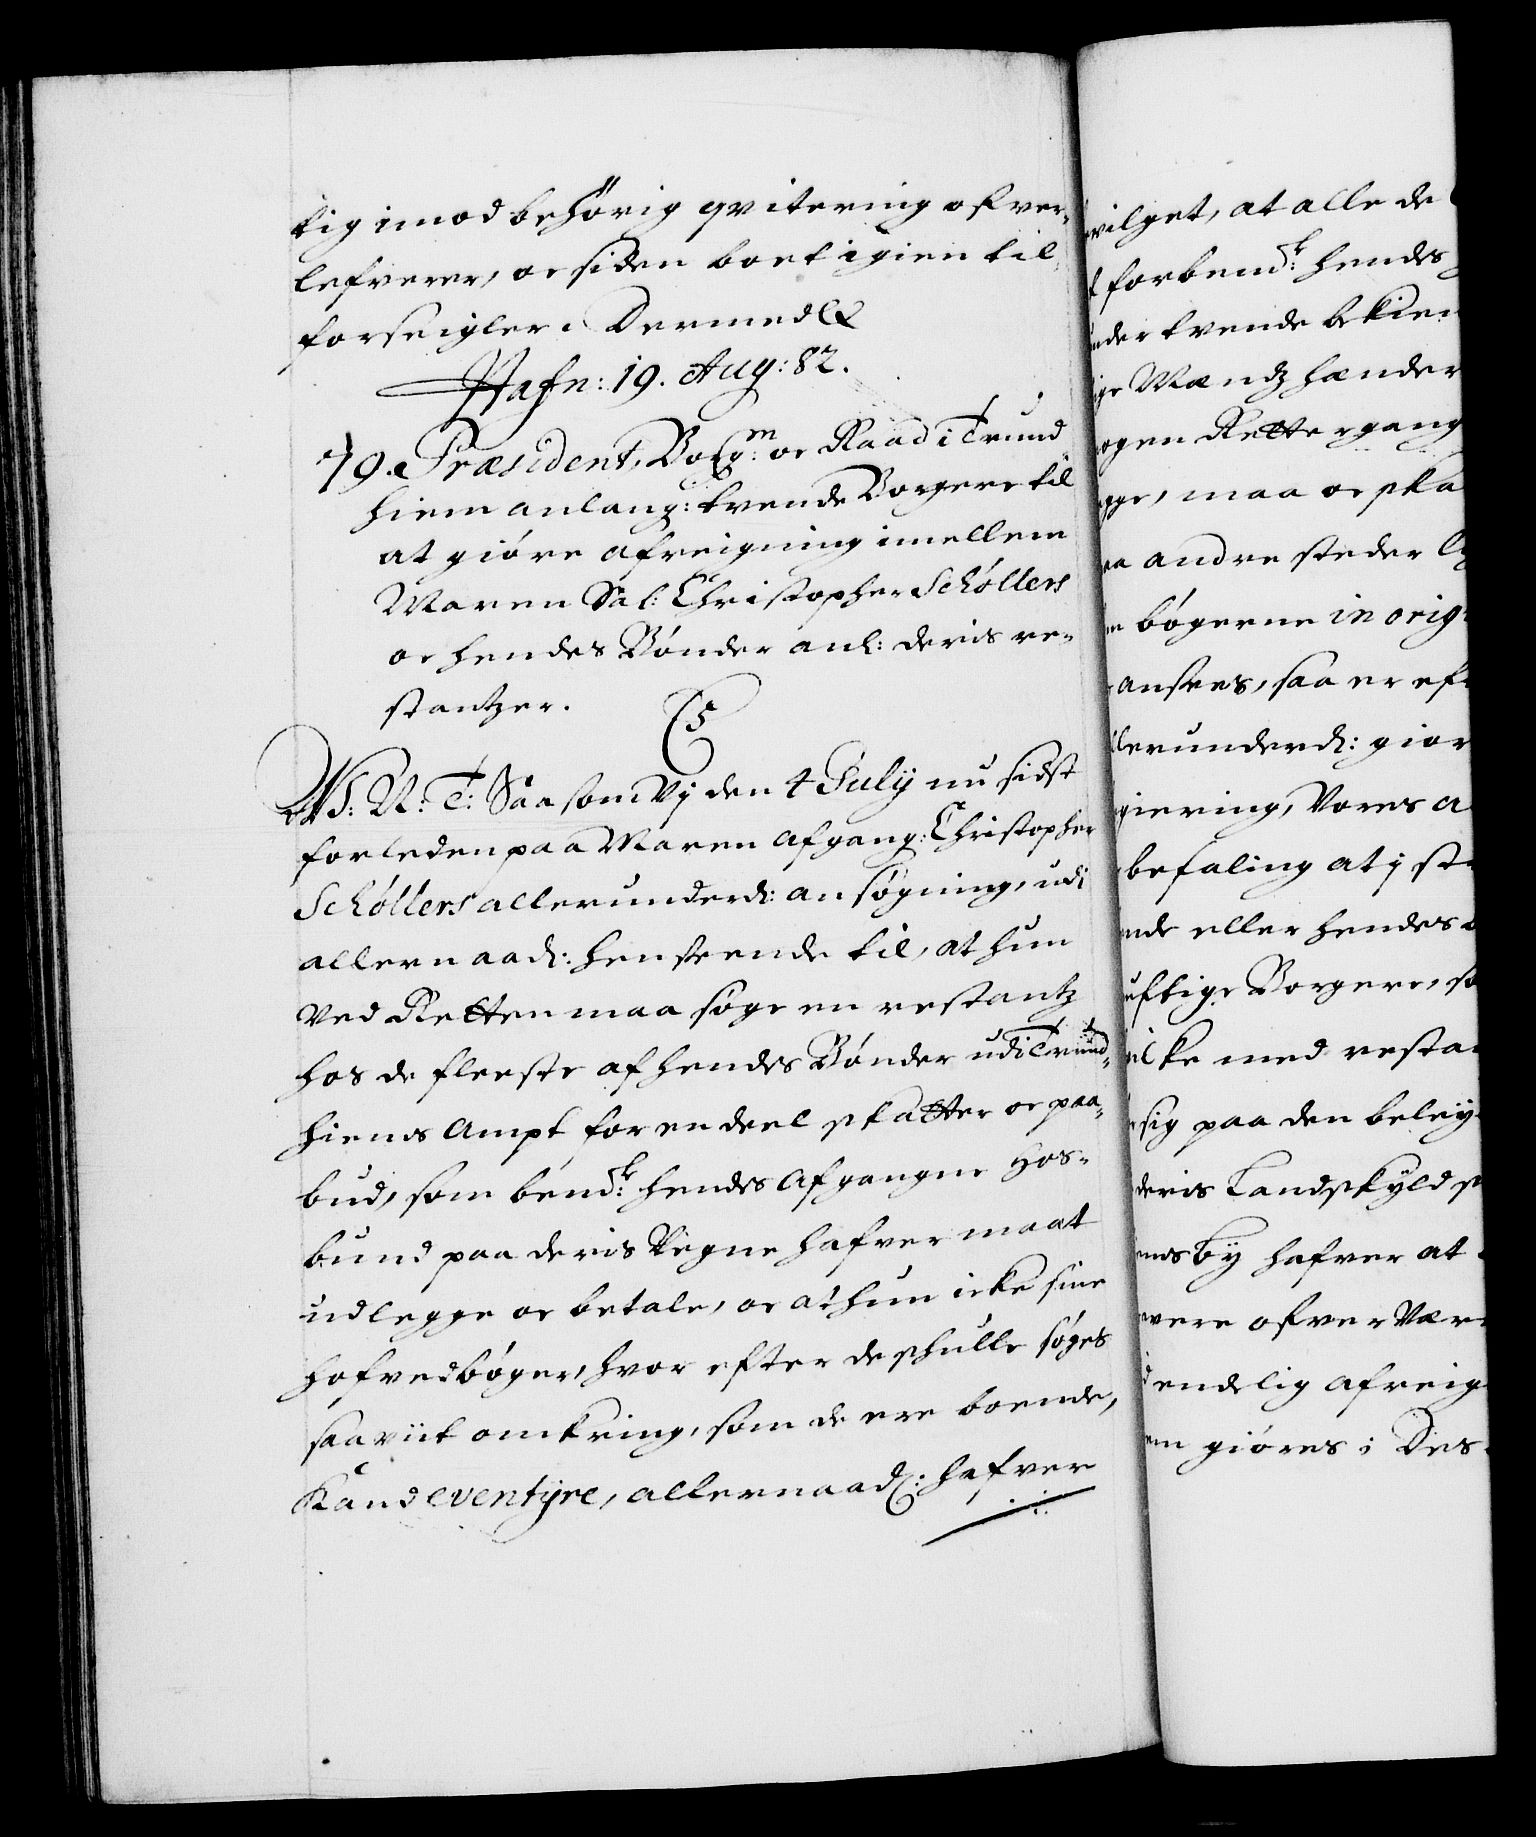 tig imod behörig qvitering ofver-
lefverer, oc siden boet igien til-
forseigler. Dermed &c
Hafn: 19. Aug: 82.
79. Præsident, Borg:m oc Raad i Trund
hiem anlang: tvende Borgere til
at giöre afreigning imellem
Maren Sal: Christopher Schöllers
oc hendes Bönder anl: deris re-
stantzer.
C5
V. G: T: Saasom Vj den 4 July nu sidst
forleden paa Maren afgang: Christopher
Schöllers allerunderd: ansögning, udi
allernaad: henseende til, at hun
ved Retten maa söge en restantz
hos de fleeste af hendes Bönder udi Trund-
hiems Ampt for en deel skatter oc paa-
bud, som bemd:te hendes afgangne Hos-
bund paa deris Vegne hafver maat
udlegge oc betale, oc at hun icke sine
hofvedböger, hvor efter de skulle söges
saa viit omkring, som de ere boende,
Kand eventyre, allernaad: hafver
vilget, at alle de
forbemd:te hendes
under tvende bekien
ige Mændz hænder
ogen Rettergang
egge, maa oc ska
aa andre steder
bögerne in orig
ansees, saa er ef
llerunderd: gior
giering, Vores a
befaling at j st
ende eller hendes
ufftige Borgere, so
ilke med resta
sig paa den beleÿ
deris Landskyld s
ems bÿ hafver at
vere ofver Vær
endelig afreig
em giöres i Des